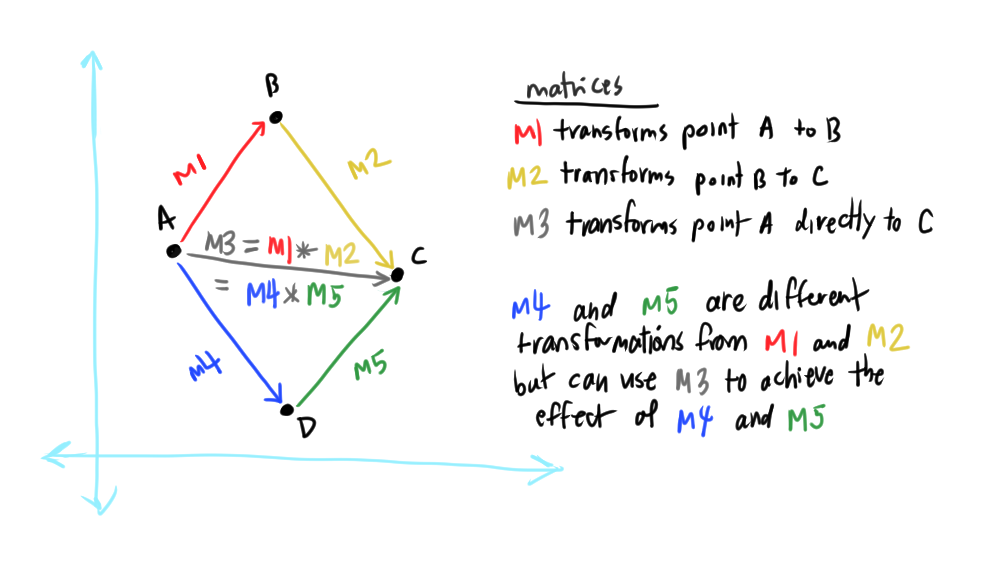 B
M1
M2
A
M3 = M1 * M2
C
= M4 * M5
M4
M5
D
matrices
M1 transforms point A to B
M2 transforms point B to C
M3 transforms point A directly to C
M4 and M5 are different
transformations from M1 and M2
but can use M3 to achieve the
effect of M4 and M5